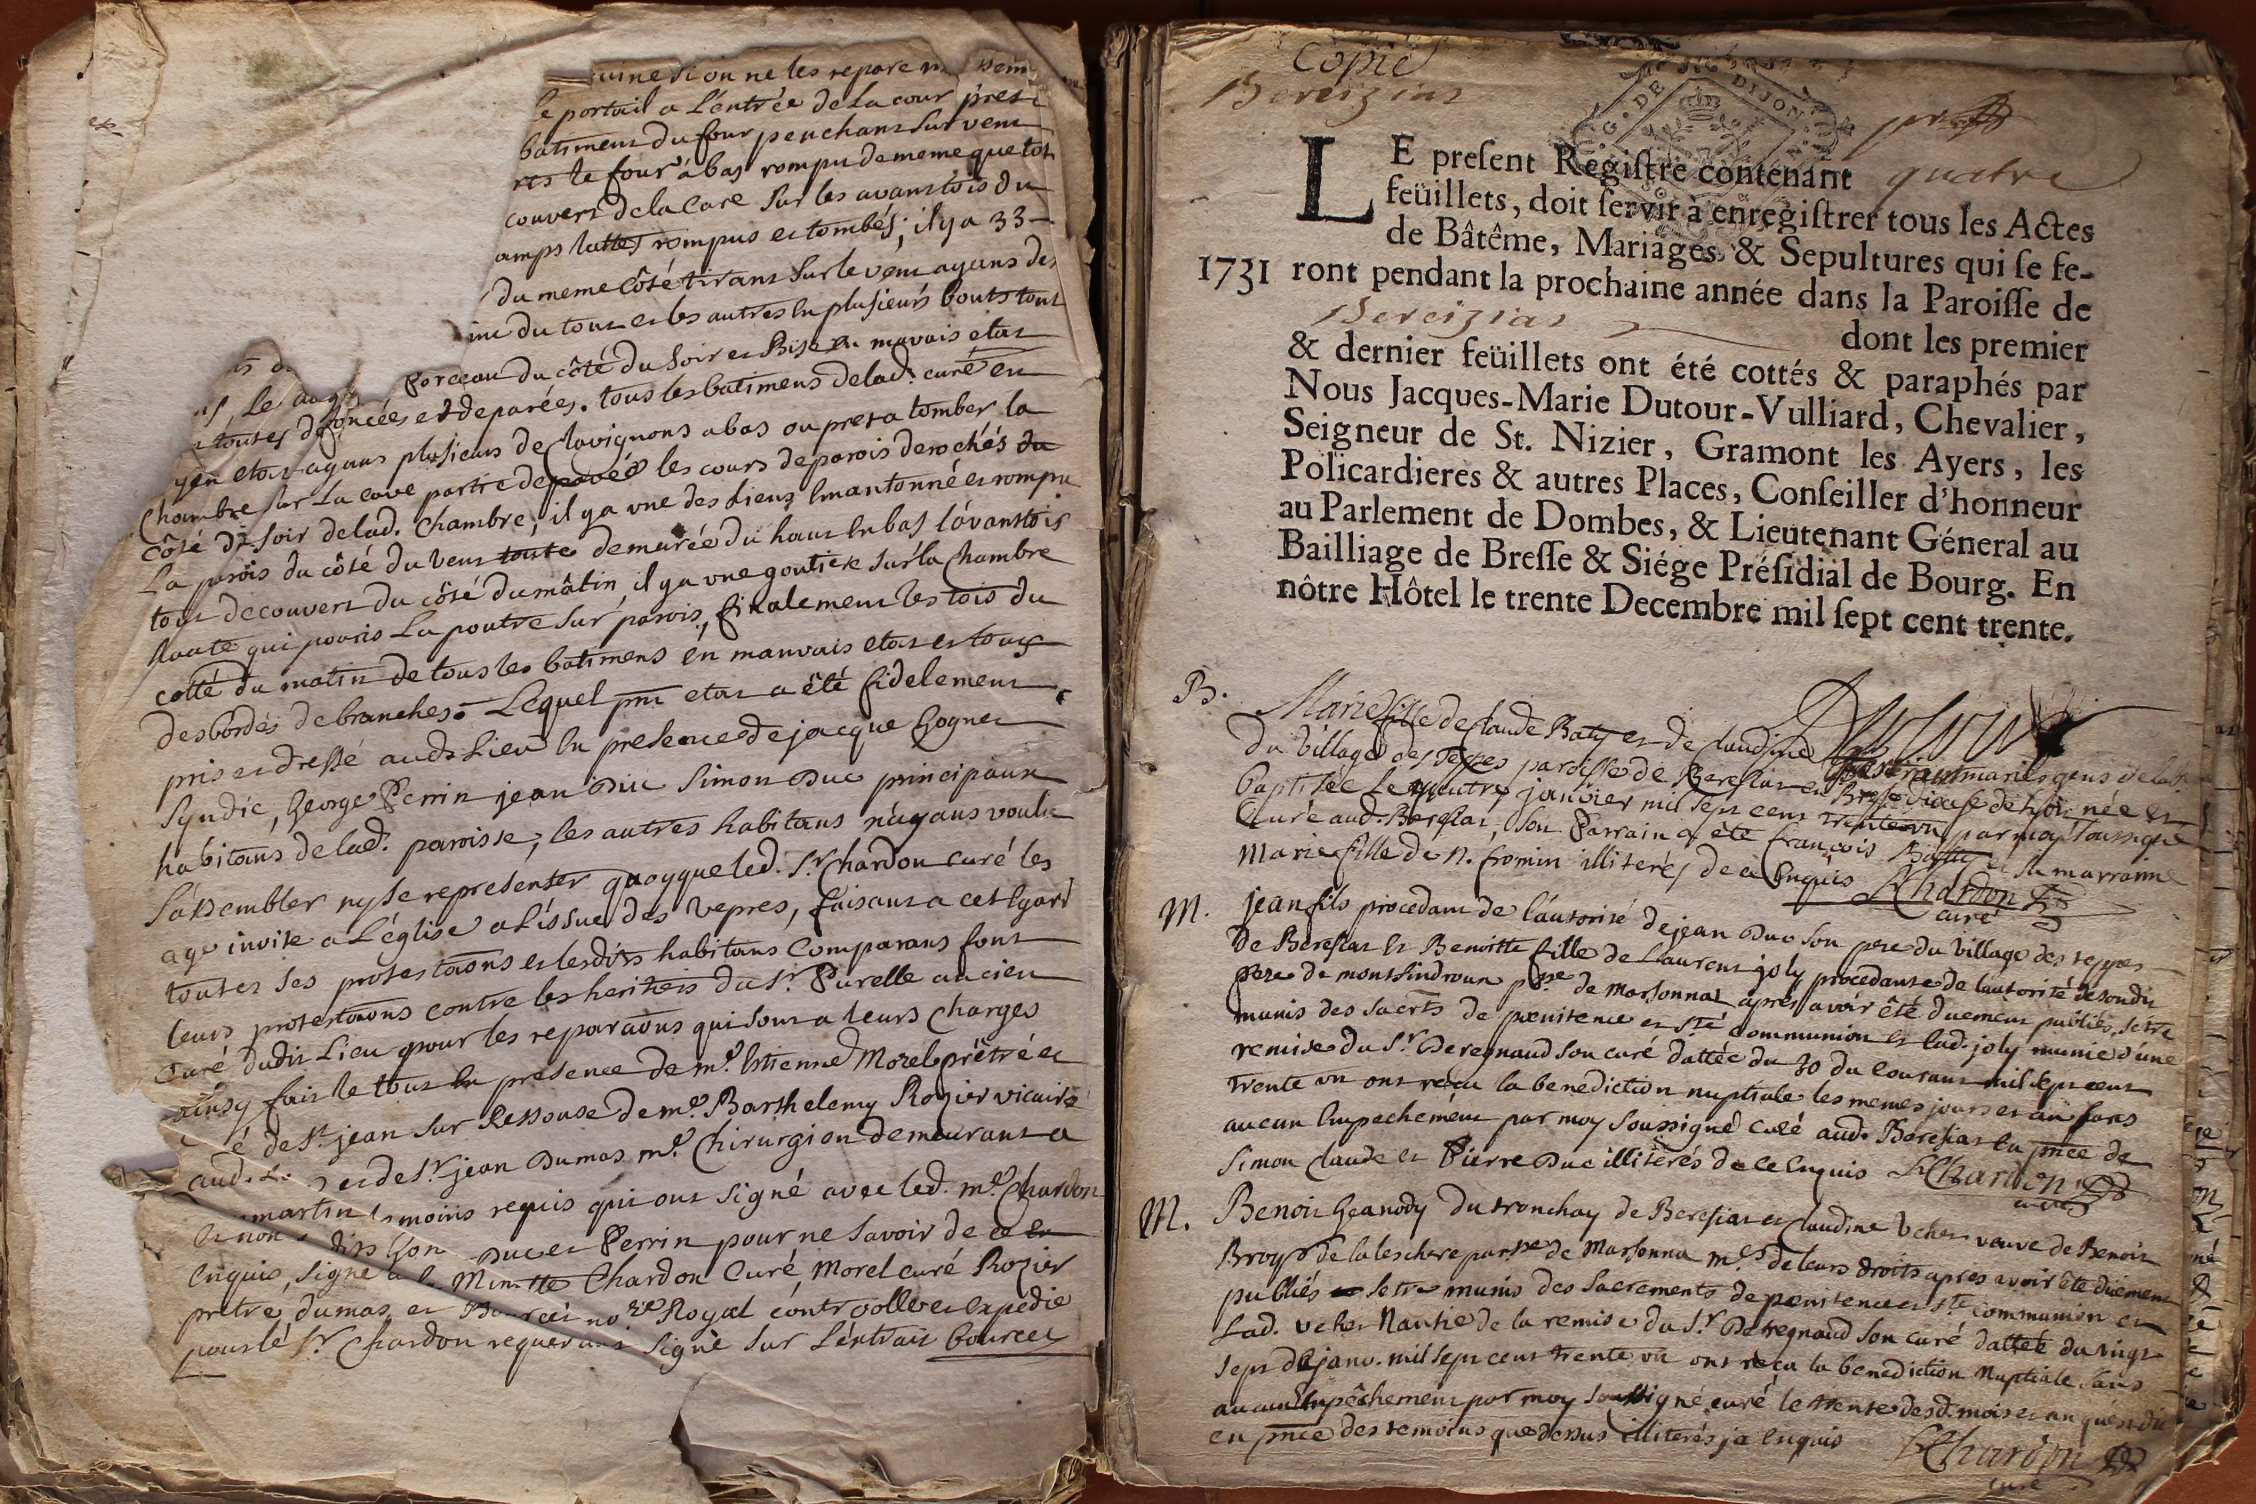 ne les repare
le portail a L'entrée de La cour pres
batiment du four penchant sur vent
le four a bas rompu de meme que
couvert de la Cave sur les avantois du
rompus et tombés; il y a 33
du meme Côté tirant sur le vent ayans des
du tout et les autres en plusieurs bouts tout
du côté du Soir et Bise en mavais etat
toutes defoncées et deparées. tous les batimens de lad. cure en
etat ayans plusieurs de clavignons a bas ou prest a tomber la
Chambre sur La cave partie depavée les cours de parois derochés du
côté du soir de lad. Chambre, il y a une des Liens emantonné et rompu
La parois du côté du vent toute demurée du haut en bas l'avantois
tout decouvert du côté du mâtin, il y a une goutiere sur la Chambre
haute qui pouris La poutre sur parois, finalement les tois du
cotté du matin de tous les batimens en mauvais etat et tous
desbordés de branches. Lequel pnt etat a êté fidelement
pris et dressé aud. Lieu en presence de jacque Gognet
Syndic, George Perrin jean Duc Simon Duc principaux
habitans de lad. paroisse, les autres habitans n'ayans voulu
s'assembler ny se representer quoyque led. Sr. Chardon curé les
aye invité a L'église a L'issue des Vepres, faisant a cet Egard
toutes ses protestaons et lesdits habitans Comparans font
leurs protestaons contre les heritiers du Sr. Purelle ancien
Curé dudit Lieu pour les reparaons qui sont a leurs Charges
ainsy fait le tout en presence de me. Estienne Morel prêtre et
de St. jean sur Ressouse de me. Barthelemy Rozier vicaire
aud. et de Sr. jean Dumas me. Chirurgien demeurant a
martin temoins requis qui ont signé avec led. me. Chardon
et non Duc et Perrin pour ne savoir de ce
Enquis, signé a la Minutte Chardon Curé, Morel curé Rozier
prêtre, dumas, et Bourcet nore. Royal controollé et Expedié
pour le Sr. Chardon requerant signé sur L'éxtrait Bourcet
Copie
Bereizias
G. DE DIJON
LE present Registre contenant quatre
feüillets, doit servir à enregistrer tous les Actes
de Bâtême, Mariages, & Sepultures qui se fe-
1731 ront pendant la prochaine année dans la Paroisse de
Bereizias dont les premier
& dernier feüillets ont été cottés & paraphés par
Nous Jacques-Marie Dutour-Vulliard, Chevalier,
Seigneur de St. Nizier, Gramont les Ayers, les
Policardieres & autres Places, Conseiller d'honneur
au Parlement de Dombes, & Lieutenant Géneral au
Bailliage de Bresse & Siége Présidial de Bourg. En
nôtre Hôtel le trente Decembre mil sept cent trente.
Dutour
B. Marie fille de Claude Baty et de Claudine
du Village des teppes paroisse de Beresias en Bresse diocese de Lyon née et
Baptisée Le quatre janvier mil sept cent trente un par moy soussigné
Curé aud. Beresias, son Parrain a été françois Baty et sa marraine
Marie fille de N. fromin illiterés de ce Enquis Chardon
curé
M. jean fils procedant de l'autorité de jean Duc son pere du Village des teppes
de Beresias et Benoitte fille de Laurent joly procedante de l'autorité de sondit
pere de montsindroux psse. de Marsonnas apres avoir été duement publiés, s'etre
munis des sacrts de penitence et ste Communion et lad. joly munie d'une
remise du Sr. Deregnaud son curé dattée du 30 du Courant mil sept cent
trente un ont reçu la benediction nuptiale les memes jours et an sans
aucun Empechement par moy Soussigné curé aud. Beresias en pnce de
Simon Claude et Pierre Duc illiterés de ce Enquis Chardon
curé
M. Benoit Geanody du tronchay de Beresias et Claudine Vcher veuve de Benoit
Broyo de la leschere parsse. de Marsonna mes. de leurs droits apres avoir été düement
publiés s'etre munis des Sacrements de penitence et ste Communion et
Lad. Vcher Nantie de la remise du Sr. Deregnaud son curé dattée du vingt
sept de janv. mil sept cent trente un ont reçu la benediction Nuptiale sans
aucun Empêchement par moy soussigné curé le trente desd. mois et an que dit
en pnce des temoins que dessus illiterés je Enquis Chardon
curé